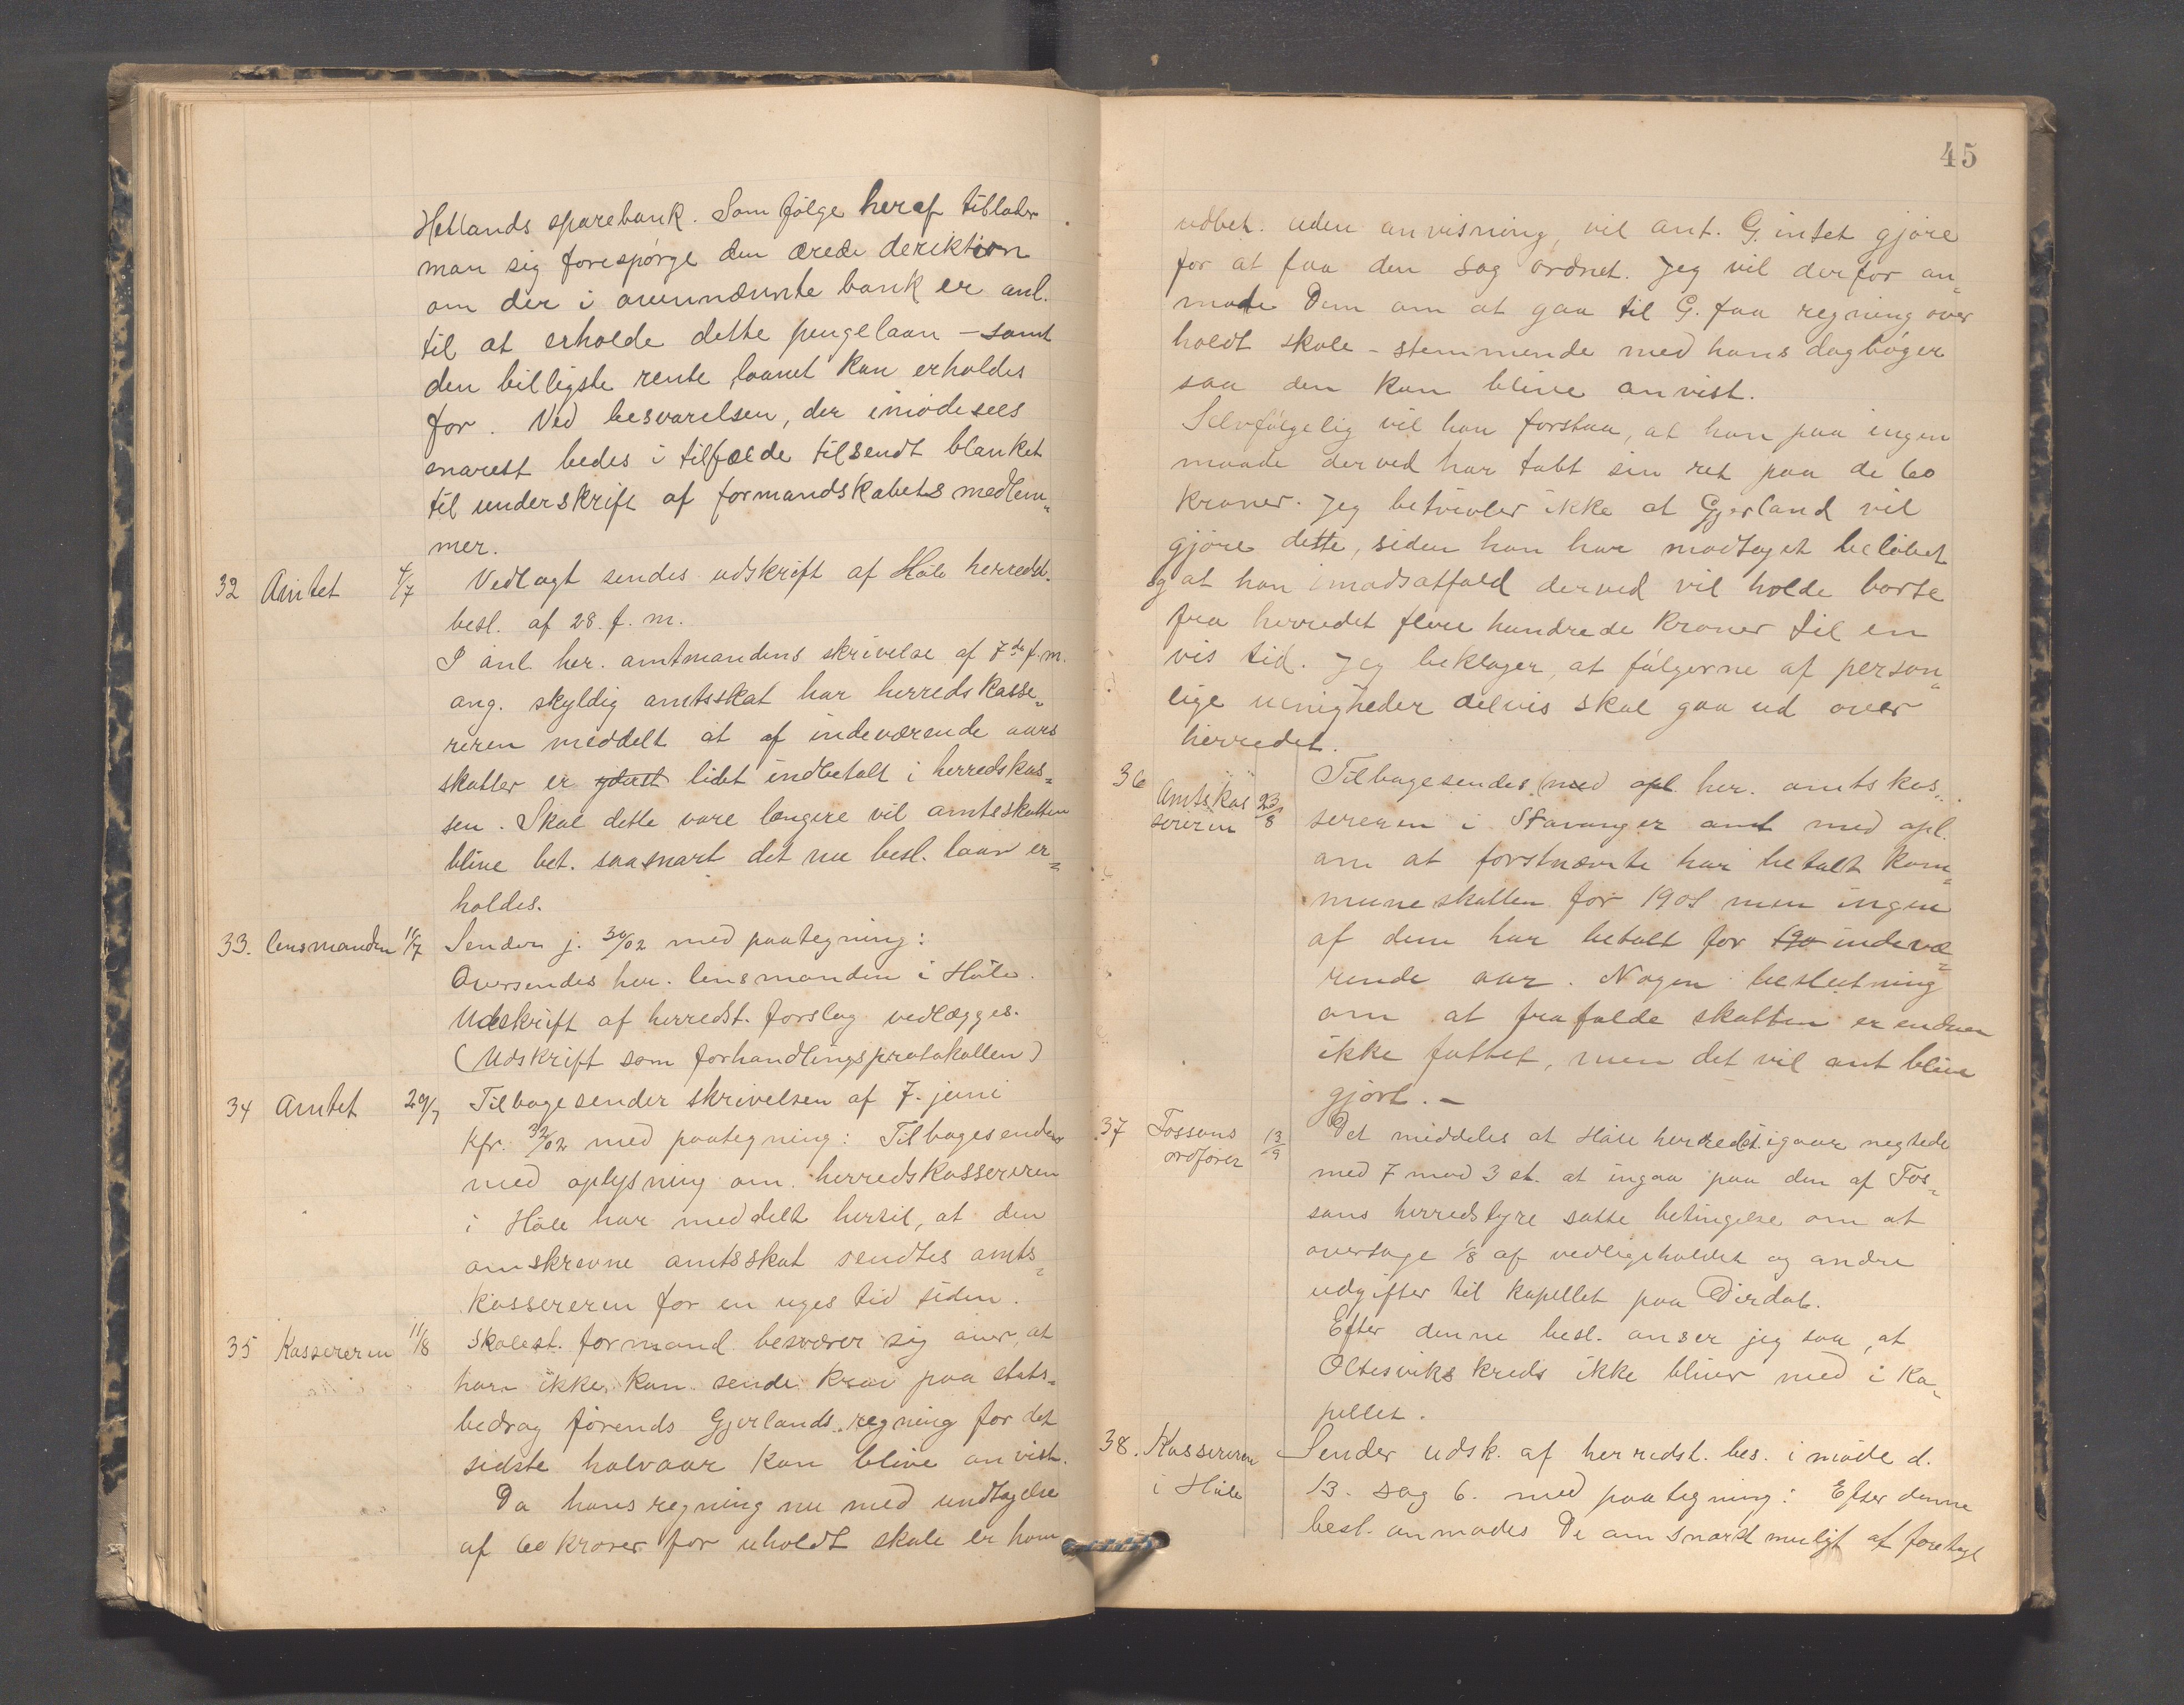 Hetlands sparebank. Som følge heraf tillader
man sig forespørge den ærede deriktion
om der i ovennævnte bank er anl.
til at erholde dette pengelaan – samt
den billigste rente laanet kan erholdes
for. Ved besvarelsen, der imødesees
snarest bedes i tilfælde tilsendt blanket
til underskrift af formandskabets medlem„
mer.
32 Amtet 4/7 Vedlagt sendes udskrift af Høle herredst.
besl. af 28. f. m.
I anl. her. amtmandens skrivelse af 7de f. m.
ang. skyldig amtsskat har herredskasse„
reren meddelt at af indeværende aars
skatter er lidet indbetalt i herredskas„
sen. Skal dette vare længere vil amtsskatten
blive bet. saasnart det nu besl. laan er„
holdes.
33. Lensmanden 11/7 Sender j. 30/02 med paategning:
Oversendes her. lensmanden i Høle.
Udskrift af herredst. forslag vedlægges.
(Udskrift som forhandlingsprotokollen)
34 Amtet 29/7 Tilbagesender skrivelsen af 7. juni
Kfr. 32/02 med paategning: Tilbagesendes
med oplysning om. herredskassereren
i Høle har meddelt hertil, at den
omskrevne amtsskat sendtes amts„
kassereren for en uges tid siden.
35 Kassereren 11/8 Skolest. formand besværer sig over, at
han ikke kan sende krav paa stats„
bedrag førends Gjerlands regning for det
sidste halvaar kan blive anvist.
Da hans regning nu med undtagelse
af 60 kroner for uholdt skole er ham
45
udbet. uden anvisning, vil ant. G. intet gjøre
for at faa den sag ordnet. Jeg vil derfor an„
mode Dem om at gaa til G. faa regning over
holdt skole – stemmende med hans dagbøger
saa den kan blive anvist.
Selvfølgelig vil han forstaa, at han paa ingen
maade derved har tabt sin ret paa de 60
kroner. Jeg betvivler ikke at Gjerland vil
gjøre dette, siden han har modtaget beløbet
og at han i modsatfald derved vil holde borte
fra herredet flere hundrede kroner til en
vis tid. Jeg beklager, at følgerne af person„
lige uenigheder delvis skal gaa ud over
herredet.
36 Amtskas 23/8 Tilbagesendes med opl. her. amtskas„
sereren sereren i Stavanger amt med opl.
om at forstnævnte har betalt kom„
muneskatten for 1901 men ingen
af dem har betalt for 190 indevæ„
rende aar. Nogen beslutning
om at frafalde skatten er endnu
ikke fattet, men det vil ant blive
gjort. –
37 Fossans 13/9 Det meddeles at Høle herredst. igaar negtede
ordfører med 7 mod 3 st. at ingaa paa den af Fos„
sans herredstyre satte betingelse om at
overtage 1/8 af vedligeholdet og andre
udgifter til kapellet paa Dirdal.
Efter denne besl. anser jeg saa, at
Oltesviks kreds ikke bliver med i Ka„
pellet.
38. Kassereren Sender udsk. af herredst. bes. i møde d.
i Høle 13. sag 6. med paategning: Efter denne
besl. anmodes De om snarest muligt at foretage